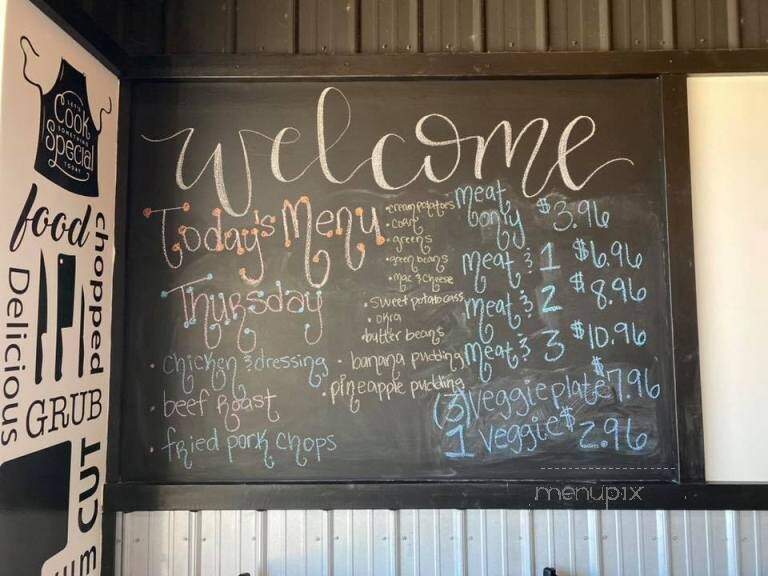 LET'S
Cook
SOMETHING
Special
TODAY
food
chopped
Delicious
GRUB
CUT
welcome
Today's Menu
Thursday
• chicken & dressing
• beef roast
• fried pork chops
• cream potatoes
• corn
• greens
• green beans
• mac & cheese
• sweet potato cass
• okra
• butter beans
• banana pudding
• pineapple pudding
meat only $3.96
meat & 1 $6.96
meat & 2 $8.96
meat & 3 $10.96
(3) veggie plate $7.96
1 veggie $2.96
menupix